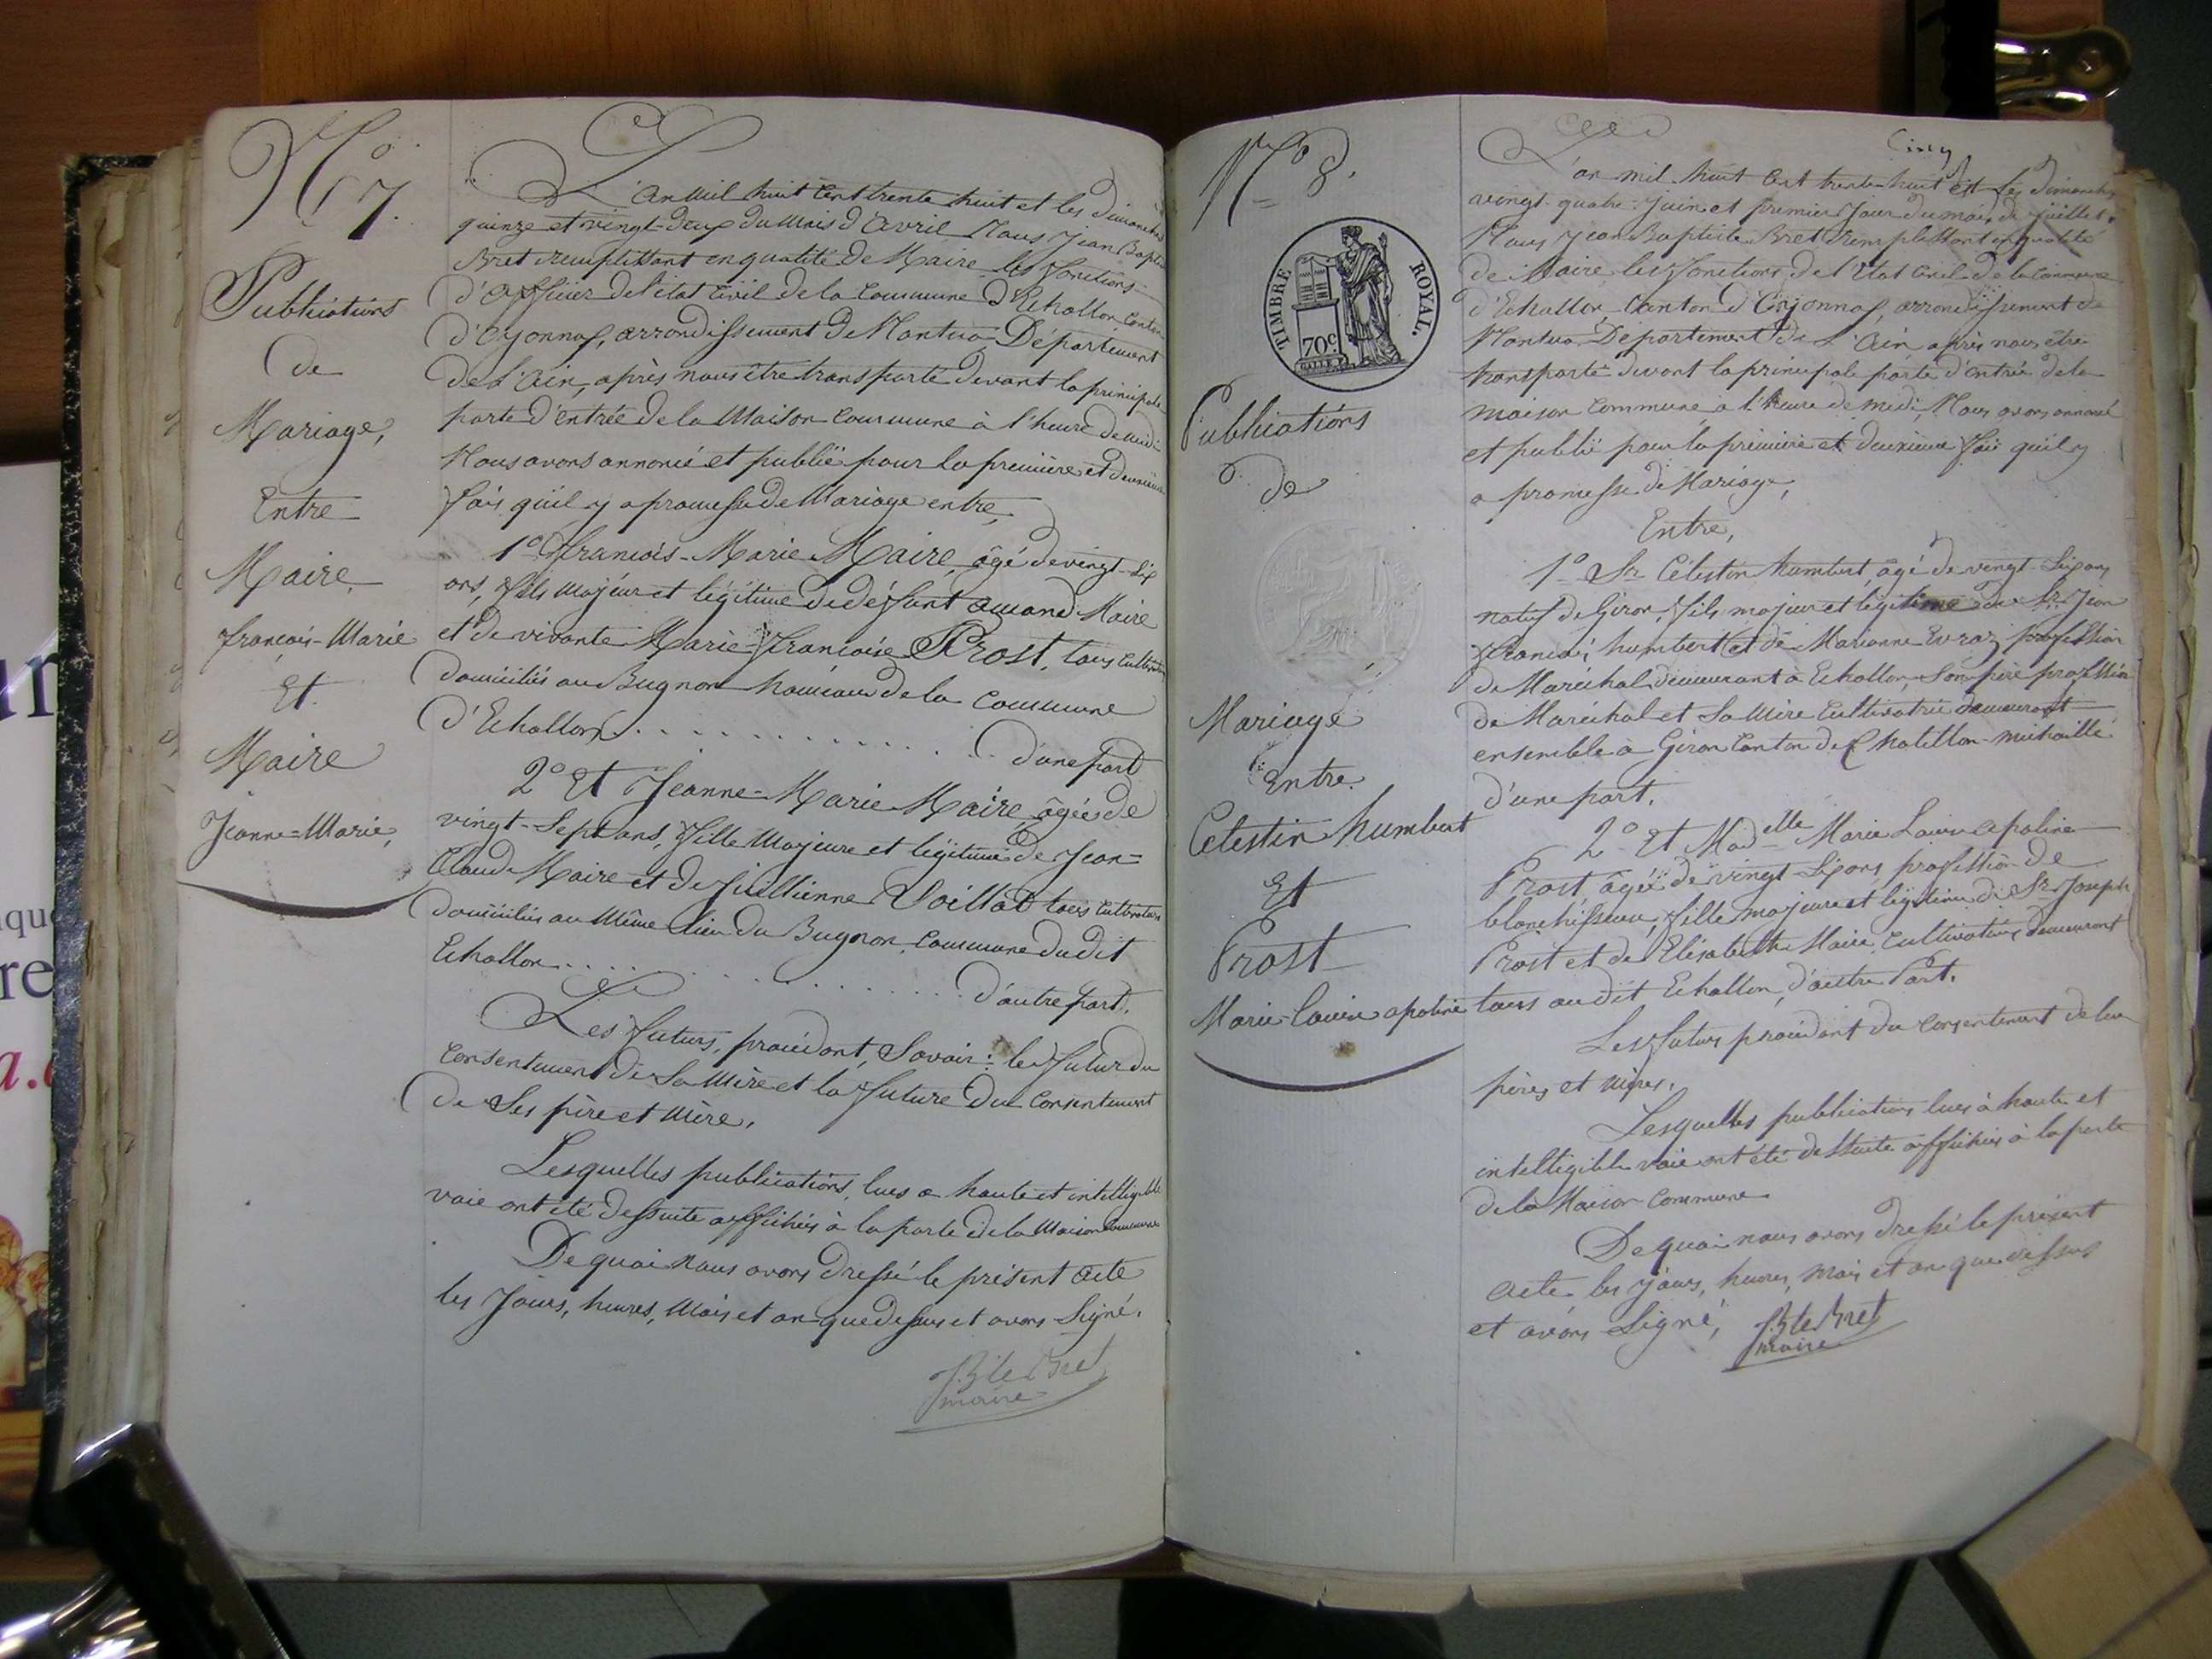 No 7.
Publications
de
Mariage,
Entre
Maire
françois-Marie
Et
Maire
Jeanne-Marie,
L'an Mil huit Cent trente huit et les dimanches
quinze et vingt-deux du Mois d'Avril Nous Jean Baptiste
Bret remplissant en qualité de Maire les fonctions
d'Officier de l'état Civil de la Commune d'Echallon, Canton
d'Oyonnax, arrondissement de Nantua Département
de l'Ain, après nous être transporté devant la principale
porte d'entrée de la Maison Commune à l'heure de midi
Nous avons annoncé et publié pour la première et deuxième
fois qu'il y a promesse de Mariage entre,
1o françois-Marie Maire, âgé de vingt-six
ans, fils majeur et légitime de défunt Amand Maire
et de vivante Marie-françoise Prost, tous Cultivateurs
domiciliés au Bugnon hameau de la Commune
d'Echallon . . . . . . . . . . . . d'une part
2o Et Jeanne-Marie Maire âgée de
vingt-Sept ans, fille Majeure et légitime de Jean-
Claude Maire et de Juillienne Poillot tous Cultivateurs
domiciliés au Même lieu du Bugnon, Commune dudit
Echallon . . . . . . . . . . . . d'autre part.
Les futurs, procédant, Savoir : le futur du
Consentement de Sa Mère et la future du Consentement
de Ses père et Mère.
Lesquelles publications, lues a haute et intelligible
voie ont été dessuite affichées à la porte de la Maison Commune
De quoi nous avons dressé le présent acte
les Jours, heures, Mois et an que dessus et avons Signé.
JBte Bret
maire
No 8.
TIMBRE ROYAL.
70c.
Publications
de
Mariage
Entre
Celestin humbert
Et
Prost
Marie-Louise apoline
Cinq
L'an mil huit Cent trente-huit et les dimanches
vingt-quatre Juin et premier Jour du mois de Juillet.
Nous Jean Baptiste Bret remplissant en qualité
de Maire les fonctions de l'Etat Civil de la Commune
d'Echallon Canton d'Oyonnax, arrondissement de
Nantua Département de L'Ain après nous être
transporté devant la principale porte d'entrée de la
maison Commune, a l'heure de midi, Nous avons annoncé
et publié pour la première et deuxieme fois qu'il y
a promesse de Mariage,
Entre,
1o Sr Célestin humbert, âgé de vingt-Six ans
natif de Giron, fils majeur et légitime de Sr Jean
françois humbert et de Marianne Evraz profession
de Maréchal demeurant à Echallon, Son père profession
de Maréchal et Sa Mère Cultivatrice demeurant
ensemble à Giron Canton de Chatillon-michaille
d'une part.
2o Et Madelle Marie Louise apoline
Prost âgée de vingt Six ans profession de
blanchisseuse, fille majeure et légitime de Sr Joseph
Prost et de Elisabeth Maire, Cultivateurs demeurant
tous audit Echallon, d'autre Part.
Les futurs procédant du Consentement de leur
pères et Mères.
Lesquelles publications lues à haute et
intelligible voie ont été dessuite affichées à la porte
de la Maison Commune
De quoi nous avons dressé le présent
acte les jours, heures, mois et an que dessus
et avons Signé,
JBte Bret
maire